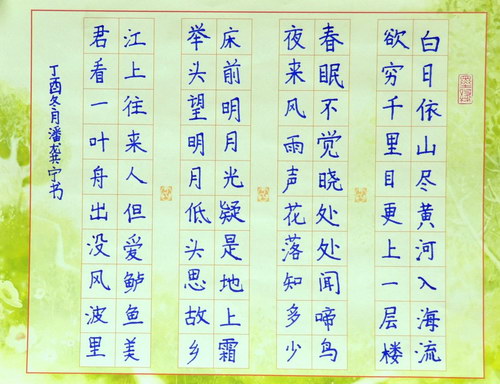 白日依山尽黄河入海流
欲穷千里目更上一层楼
春眠不觉晓处处闻啼鸟
夜来风雨声花落知多少
床前明月光疑是地上霜
举头望明月低头思故乡
江上往来人但爱鲈鱼美
君看一叶舟出没风波里
丁酉冬月潘龚宁书